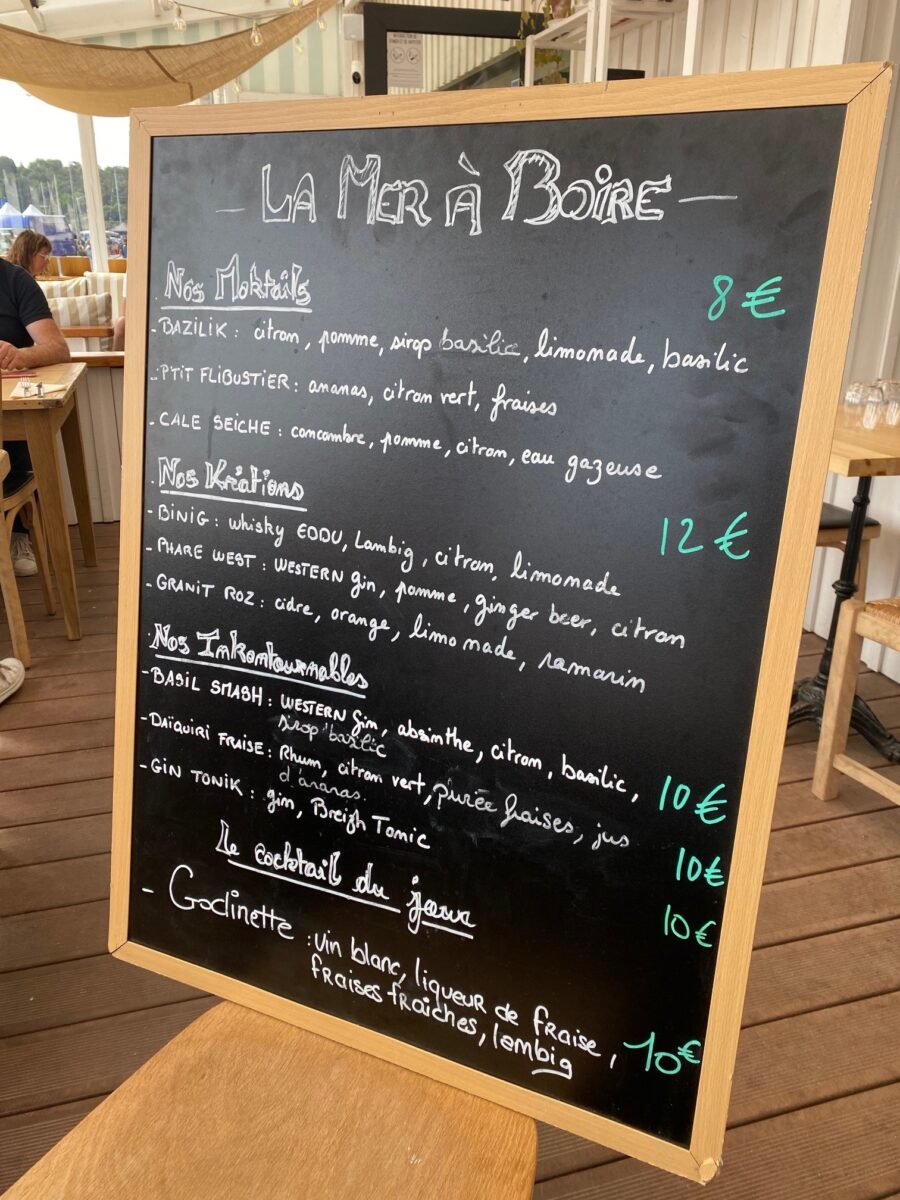 — LA MER À BOIRE —
Nos Moktails 8 €
- BAZILIK : citron, pomme, sirop basilic, limonade, basilic
- P'TIT FLIBUSTIER : ananas, citron vert, fraises
- CALE SEICHE : concombre, pomme, citron, eau gazeuse
Nos Kréations 12 €
- BINIG : whisky EDDU, Lambig, citron, limonade
- PHARE WEST : WESTERN gin, pomme, ginger beer, citron
- GRANIT ROZ : cidre, orange, limonade, ramarin
Nos Inkontournables
- BASIL SMASH : WESTERN gin, absinthe, citron, basilic,
sirop basilic 10 €
- DAÏQUIRI FRAISE : Rhum, citron vert, purée fraises, jus
d'ananas. 10 €
- GIN TONIK : gin, Breizh Tonic 10 €
Le cocktail du jour
- Godinette : vin blanc, liqueur de fraise,
fraises fraîches, lambig 10 €